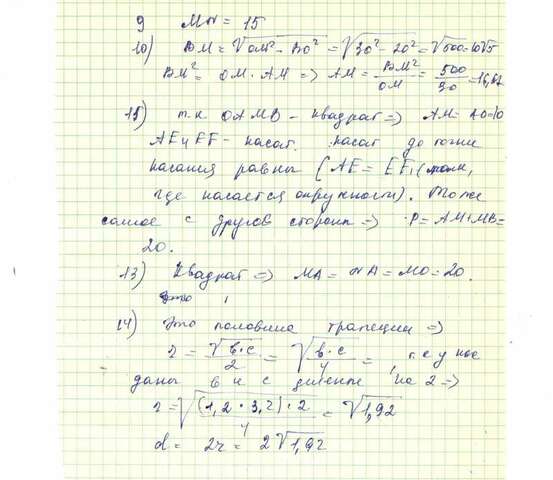 9 MN = 15
10) BM = √OM² - BO² = √30² - 20² = √500 = 10√5
BM² = OM · AM => AM = BM²/OM = 500/30 = 16,67
15) т.к. OAMB - квадрат => AM = AO = 10
AE и EF - касат. касат до точки
касания равны (AE = EF, (точка,
где касается окружности). Тоже
самое с другой стороны => P = AM + MB =
20.
13) Квадрат => MA = NA = MO = 20.
14) Это половина трапеции =>
r = √b·c/2 = √b·c/4 = , т.е у нас
даны в и с деленые на 2 =>
r = √(1,2 · 3,2) · 2/4 = √1,92
d = 2r = 2√1,92